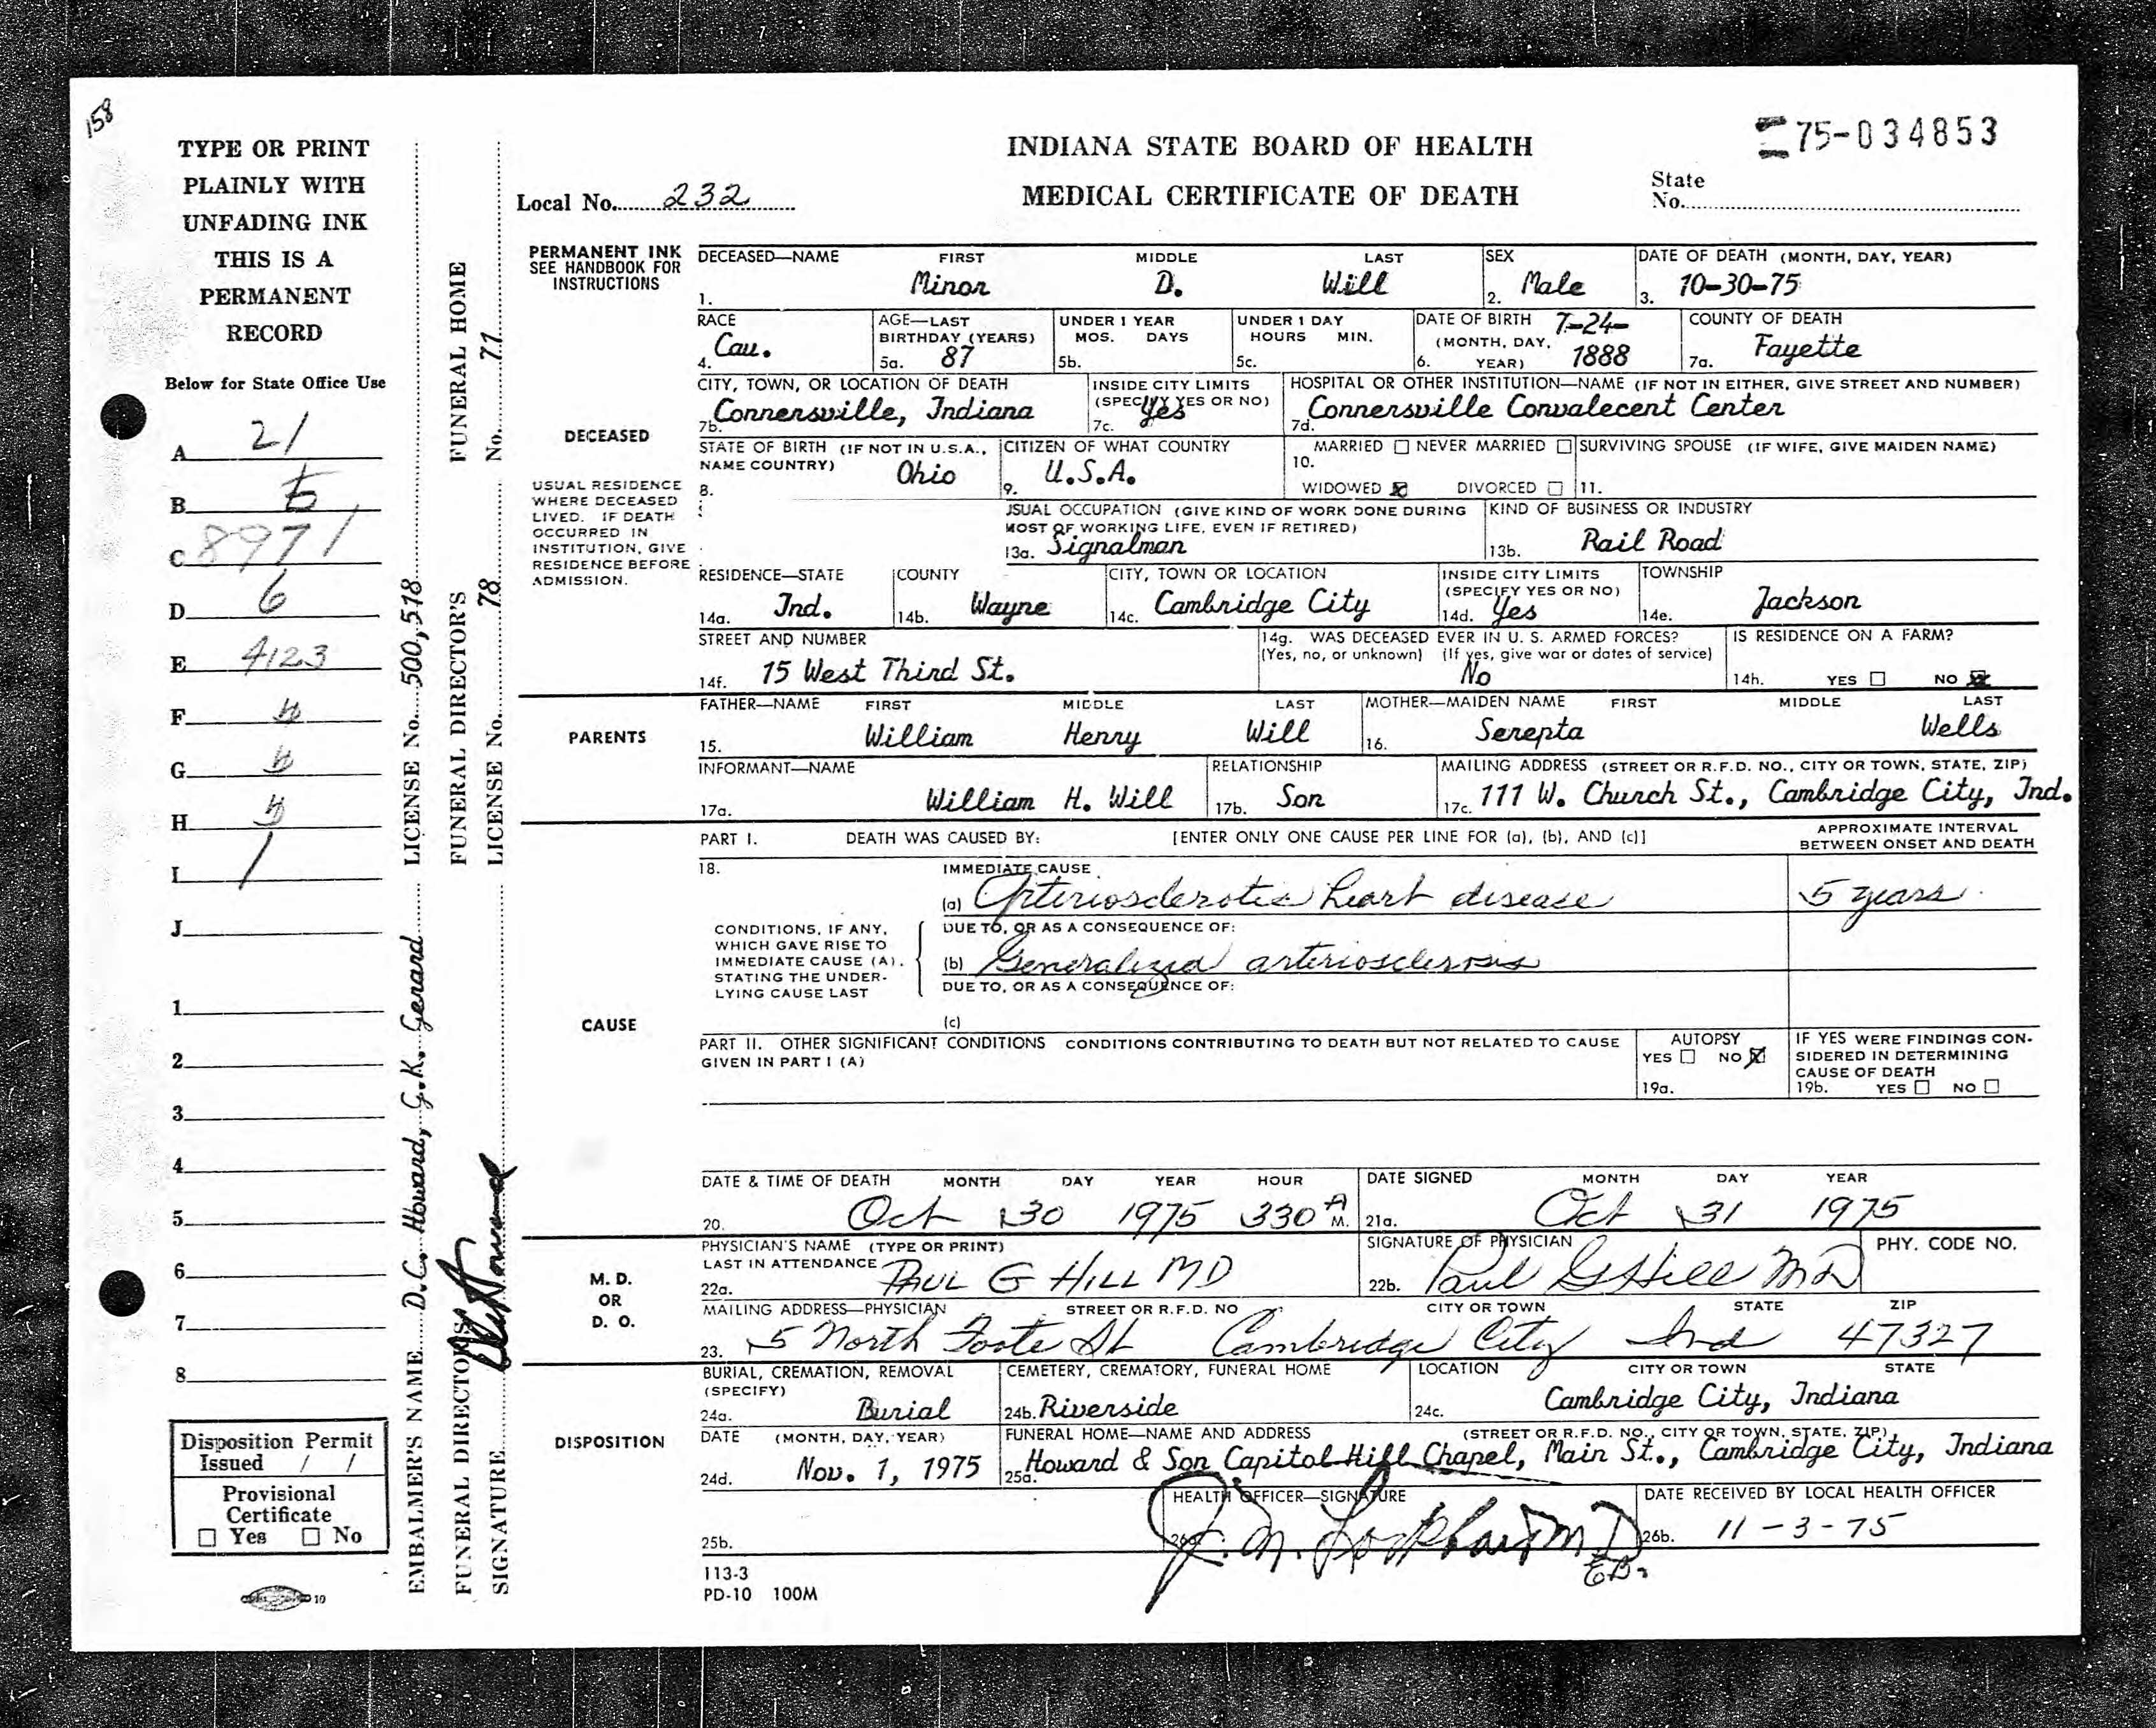 158
TYPE OR PRINT
PLAINLY WITH
UNFADING INK
THIS IS A
PERMANENT
RECORD
Below for State Office Use
A 21
B 5
C 8971
D 6
E 4123
F
G
H
I 1
J
1
2
3
4
5
6
7
8
Disposition Permit
Issued / /
Provisional
Certificate
☐ Yes ☐ No
10
EMBALMER'S NAME D.C. Howard, G.K. Gerard LICENSE No. 500,518
FUNERAL DIRECTOR'S
SIGNATURE
FUNERAL DIRECTOR'S
LICENSE No. 78
FUNERAL HOME
No. 71
INDIANA STATE BOARD OF HEALTH
75-034853
Local No. 232
MEDICAL CERTIFICATE OF DEATH
State
No.
PERMANENT INK
SEE HANDBOOK FOR
INSTRUCTIONS
DECEASED—NAME FIRST MIDDLE LAST SEX DATE OF DEATH (MONTH, DAY, YEAR)
1. Minor D. Will 2. Male 3. 10-30-75
RACE AGE—LAST BIRTHDAY (YEARS) UNDER 1 YEAR MOS. DAYS UNDER 1 DAY HOURS MIN. DATE OF BIRTH (MONTH, DAY, YEAR) COUNTY OF DEATH
4. Cau. 5a. 87 5b. 5c. 6. 7-24-1888 7a. Fayette
DECEASED
CITY, TOWN, OR LOCATION OF DEATH INSIDE CITY LIMITS (SPECIFY YES OR NO) HOSPITAL OR OTHER INSTITUTION—NAME (IF NOT IN EITHER, GIVE STREET AND NUMBER)
7b. Connersville, Indiana 7c. Yes 7d. Connersville Convalecent Center
STATE OF BIRTH (IF NOT IN U.S.A., NAME COUNTRY) CITIZEN OF WHAT COUNTRY MARRIED ☐ NEVER MARRIED ☐ SURVIVING SPOUSE (IF WIFE, GIVE MAIDEN NAME)
8. Ohio 9. U.S.A. 10. WIDOWED ☒ DIVORCED ☐ 11.
USUAL RESIDENCE
WHERE DECEASED
LIVED. IF DEATH
OCCURRED IN
INSTITUTION, GIVE
RESIDENCE BEFORE
ADMISSION.
USUAL OCCUPATION (GIVE KIND OF WORK DONE DURING MOST OF WORKING LIFE, EVEN IF RETIRED) KIND OF BUSINESS OR INDUSTRY
13a. Signalman 13b. Rail Road
RESIDENCE—STATE COUNTY CITY, TOWN OR LOCATION INSIDE CITY LIMITS (SPECIFY YES OR NO) TOWNSHIP
14a. Ind. 14b. Wayne 14c. Cambridge City 14d. Yes 14e. Jackson
STREET AND NUMBER 14g. WAS DECEASED EVER IN U. S. ARMED FORCES? IS RESIDENCE ON A FARM?
(Yes, no, or unknown) (If yes, give war or dates of service)
14f. 15 West Third St. No 14h. YES ☐ NO ☒
PARENTS
FATHER—NAME FIRST MIDDLE LAST MOTHER—MAIDEN NAME FIRST MIDDLE LAST
15. William Henry Will 16. Serepta Wells
INFORMANT—NAME RELATIONSHIP MAILING ADDRESS (STREET OR R.F.D. NO., CITY OR TOWN, STATE, ZIP)
17a. William H. Will 17b. Son 17c. 111 W. Church St., Cambridge City, Ind.
PART I. DEATH WAS CAUSED BY: [ENTER ONLY ONE CAUSE PER LINE FOR (a), (b), AND (c)] APPROXIMATE INTERVAL BETWEEN ONSET AND DEATH
18. IMMEDIATE CAUSE
(a) Arteriosclerotic heart disease 5 years
CONDITIONS, IF ANY,
WHICH GAVE RISE TO
IMMEDIATE CAUSE (A).
STATING THE UNDER-
LYING CAUSE LAST
DUE TO, OR AS A CONSEQUENCE OF:
(b) Generalized arteriosclerosis
DUE TO, OR AS A CONSEQUENCE OF:
(c)
CAUSE
PART II. OTHER SIGNIFICANT CONDITIONS CONDITIONS CONTRIBUTING TO DEATH BUT NOT RELATED TO CAUSE GIVEN IN PART I (A)
AUTOPSY
YES ☐ NO ☒
19a.
IF YES WERE FINDINGS CON-
SIDERED IN DETERMINING
CAUSE OF DEATH
19b. YES ☐ NO ☐
DATE & TIME OF DEATH MONTH DAY YEAR HOUR DATE SIGNED MONTH DAY YEAR
20. Oct 30 1975 330 A M. 21a. Oct 31 1975
M. D.
OR
D. O.
PHYSICIAN'S NAME (TYPE OR PRINT) LAST IN ATTENDANCE SIGNATURE OF PHYSICIAN PHY. CODE NO.
22a. PAUL G HILL MD 22b. Paul G Hill MD
MAILING ADDRESS—PHYSICIAN STREET OR R.F.D. NO CITY OR TOWN STATE ZIP
23. 5 North Foote St Cambridge City Ind 47327
DISPOSITION
BURIAL, CREMATION, REMOVAL (SPECIFY) CEMETERY, CREMATORY, FUNERAL HOME LOCATION CITY OR TOWN STATE
24a. Burial 24b. Riverside 24c. Cambridge City, Indiana
DATE (MONTH, DAY, YEAR) FUNERAL HOME—NAME AND ADDRESS (STREET OR R.F.D. NO., CITY OR TOWN, STATE, ZIP)
24d. Nov. 1, 1975 25a. Howard & Son Capitol Hill Chapel, Main St., Cambridge City, Indiana
HEALTH OFFICER—SIGNATURE DATE RECEIVED BY LOCAL HEALTH OFFICER
25b. 26a. J. M. Lockhart MD 26b. 11-3-75
EB.
113-3
PD-10 100M